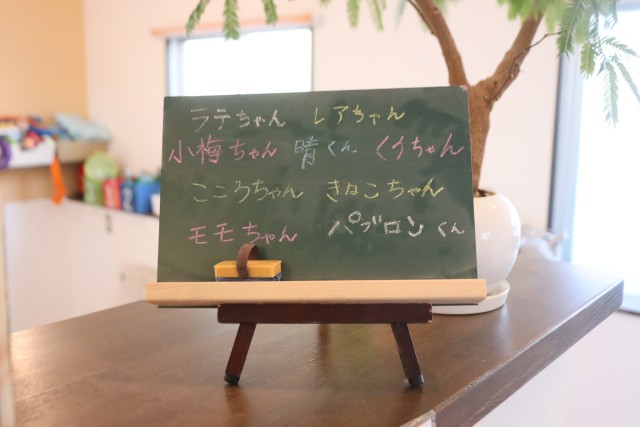 ラテちゃん レアちゃん
小梅ちゃん 晴くん くうちゃん
こころちゃん きなこちゃん
モモちゃん パブロンくん